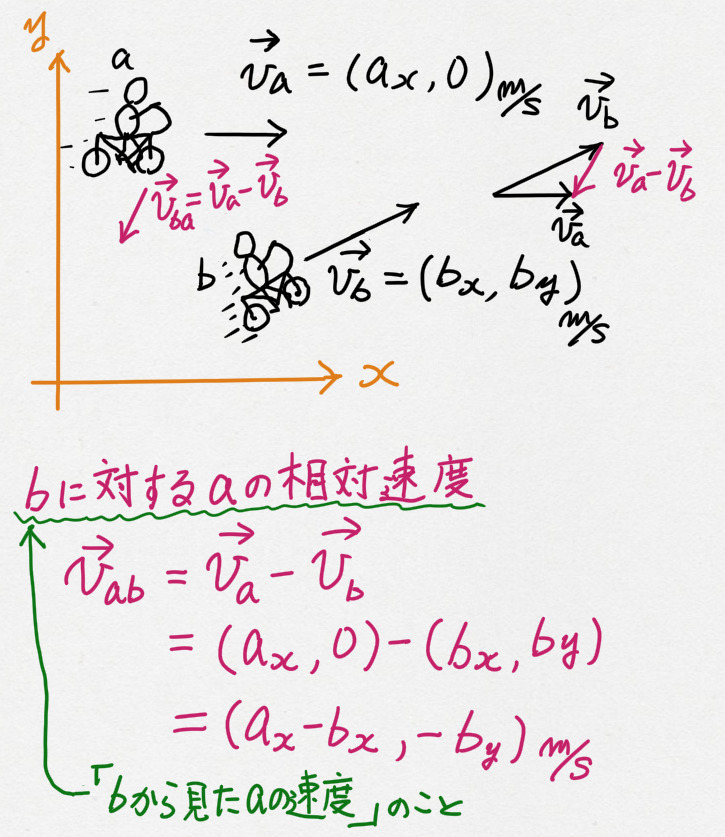 y
a
v⃗a = (ax, 0) m/s
v⃗b
v⃗ba = v⃗a - v⃗b
v⃗a - v⃗b
v⃗a
b
v⃗b = (bx, by) m/s
x
bに対するaの相対速度
v⃗ab = v⃗a - v⃗b
= (ax, 0) - (bx, by)
= (ax - bx, -by) m/s
「bから見たaの速度」のこと